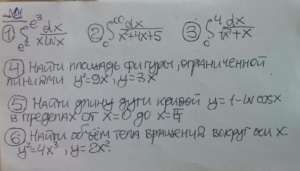 1) ∫_{e²}^{e³} dx/(x ln x) 2) ∫_0^∞ dx/(x²+4x+5) 3) ∫_0^4 dx/(√x+x)
4) Найти площадь фигуры, ограниченной
линиями y²=9x, y=3x
5) Найти длину дуги кривой y=1-ln cosx
в пределах от x=0 до x=π/4
6) Найти объём тела вращения вокруг оси x.
y²=4x³, y=2x²